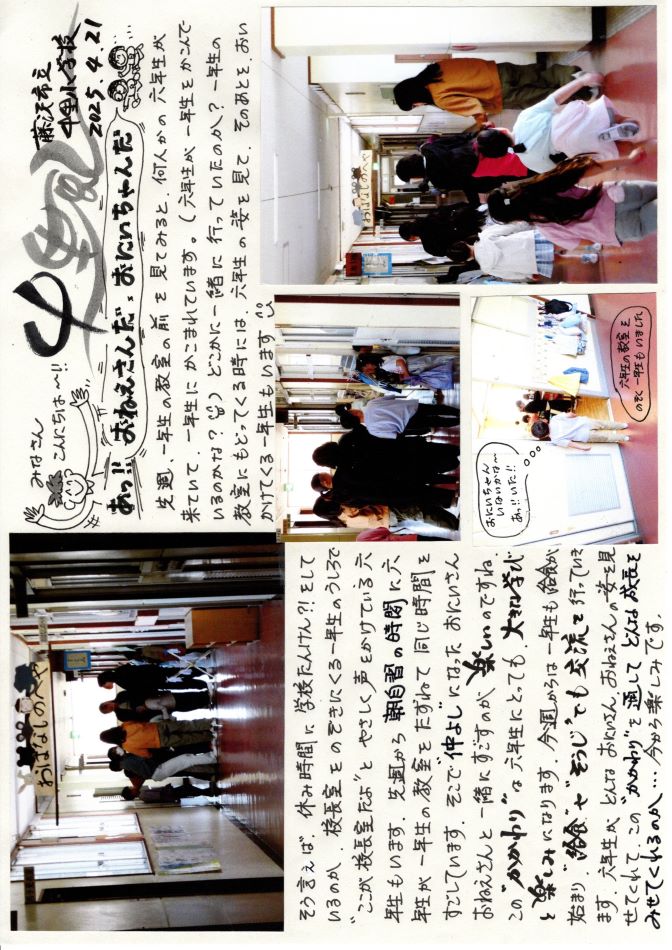 藤沢市立
中里小学校
2025.4.21
みなさん
こんにちは〜!!
あっ!!おねえさんだ、おにいちゃんだ
先週、一年生の教室の前を見てみると、何人かの六年生が
来ていて、一年生にかこまれています。(六年生が一年生をかこんで
いるのかな?)どこかに一緒に行っていたのか?一年生の
教室にもどってくる時には、六年生の姿を見て、そのあとを、おい
かけてくる一年生もいます
おはなしのへや
おにいちゃん
いないかな〜
あっ!!いた!!
六年生の教室を
のぞく一年生もいました
おはなしのへや
そう言えば、休み時間に学校たんけん?!をして
いるのか、校長室をのぞきにくる一年生のうしろで
"ここが校長室だよ"とやさしく声をかけている六
年生もいます。先週から朝自習の時間に六
年生が一年生の教室をたずねて同じ時間を
すごしています。そこで"仲よし"になったおにいさん
おねえさんと一緒にすごすのが楽しいのですね。
この"かかわり"は六年生にとっても、大きな学び
と楽しみになります。今週からは一年生も給食が
始まり、"給食"や"そうじ"でも交流を行っていき
ます。六年生がどんなおにいさんおねえさんの姿を見
せてくれて、この"かかわり"を通してどんな成長を
みせてくれるのか…今から楽しみです。